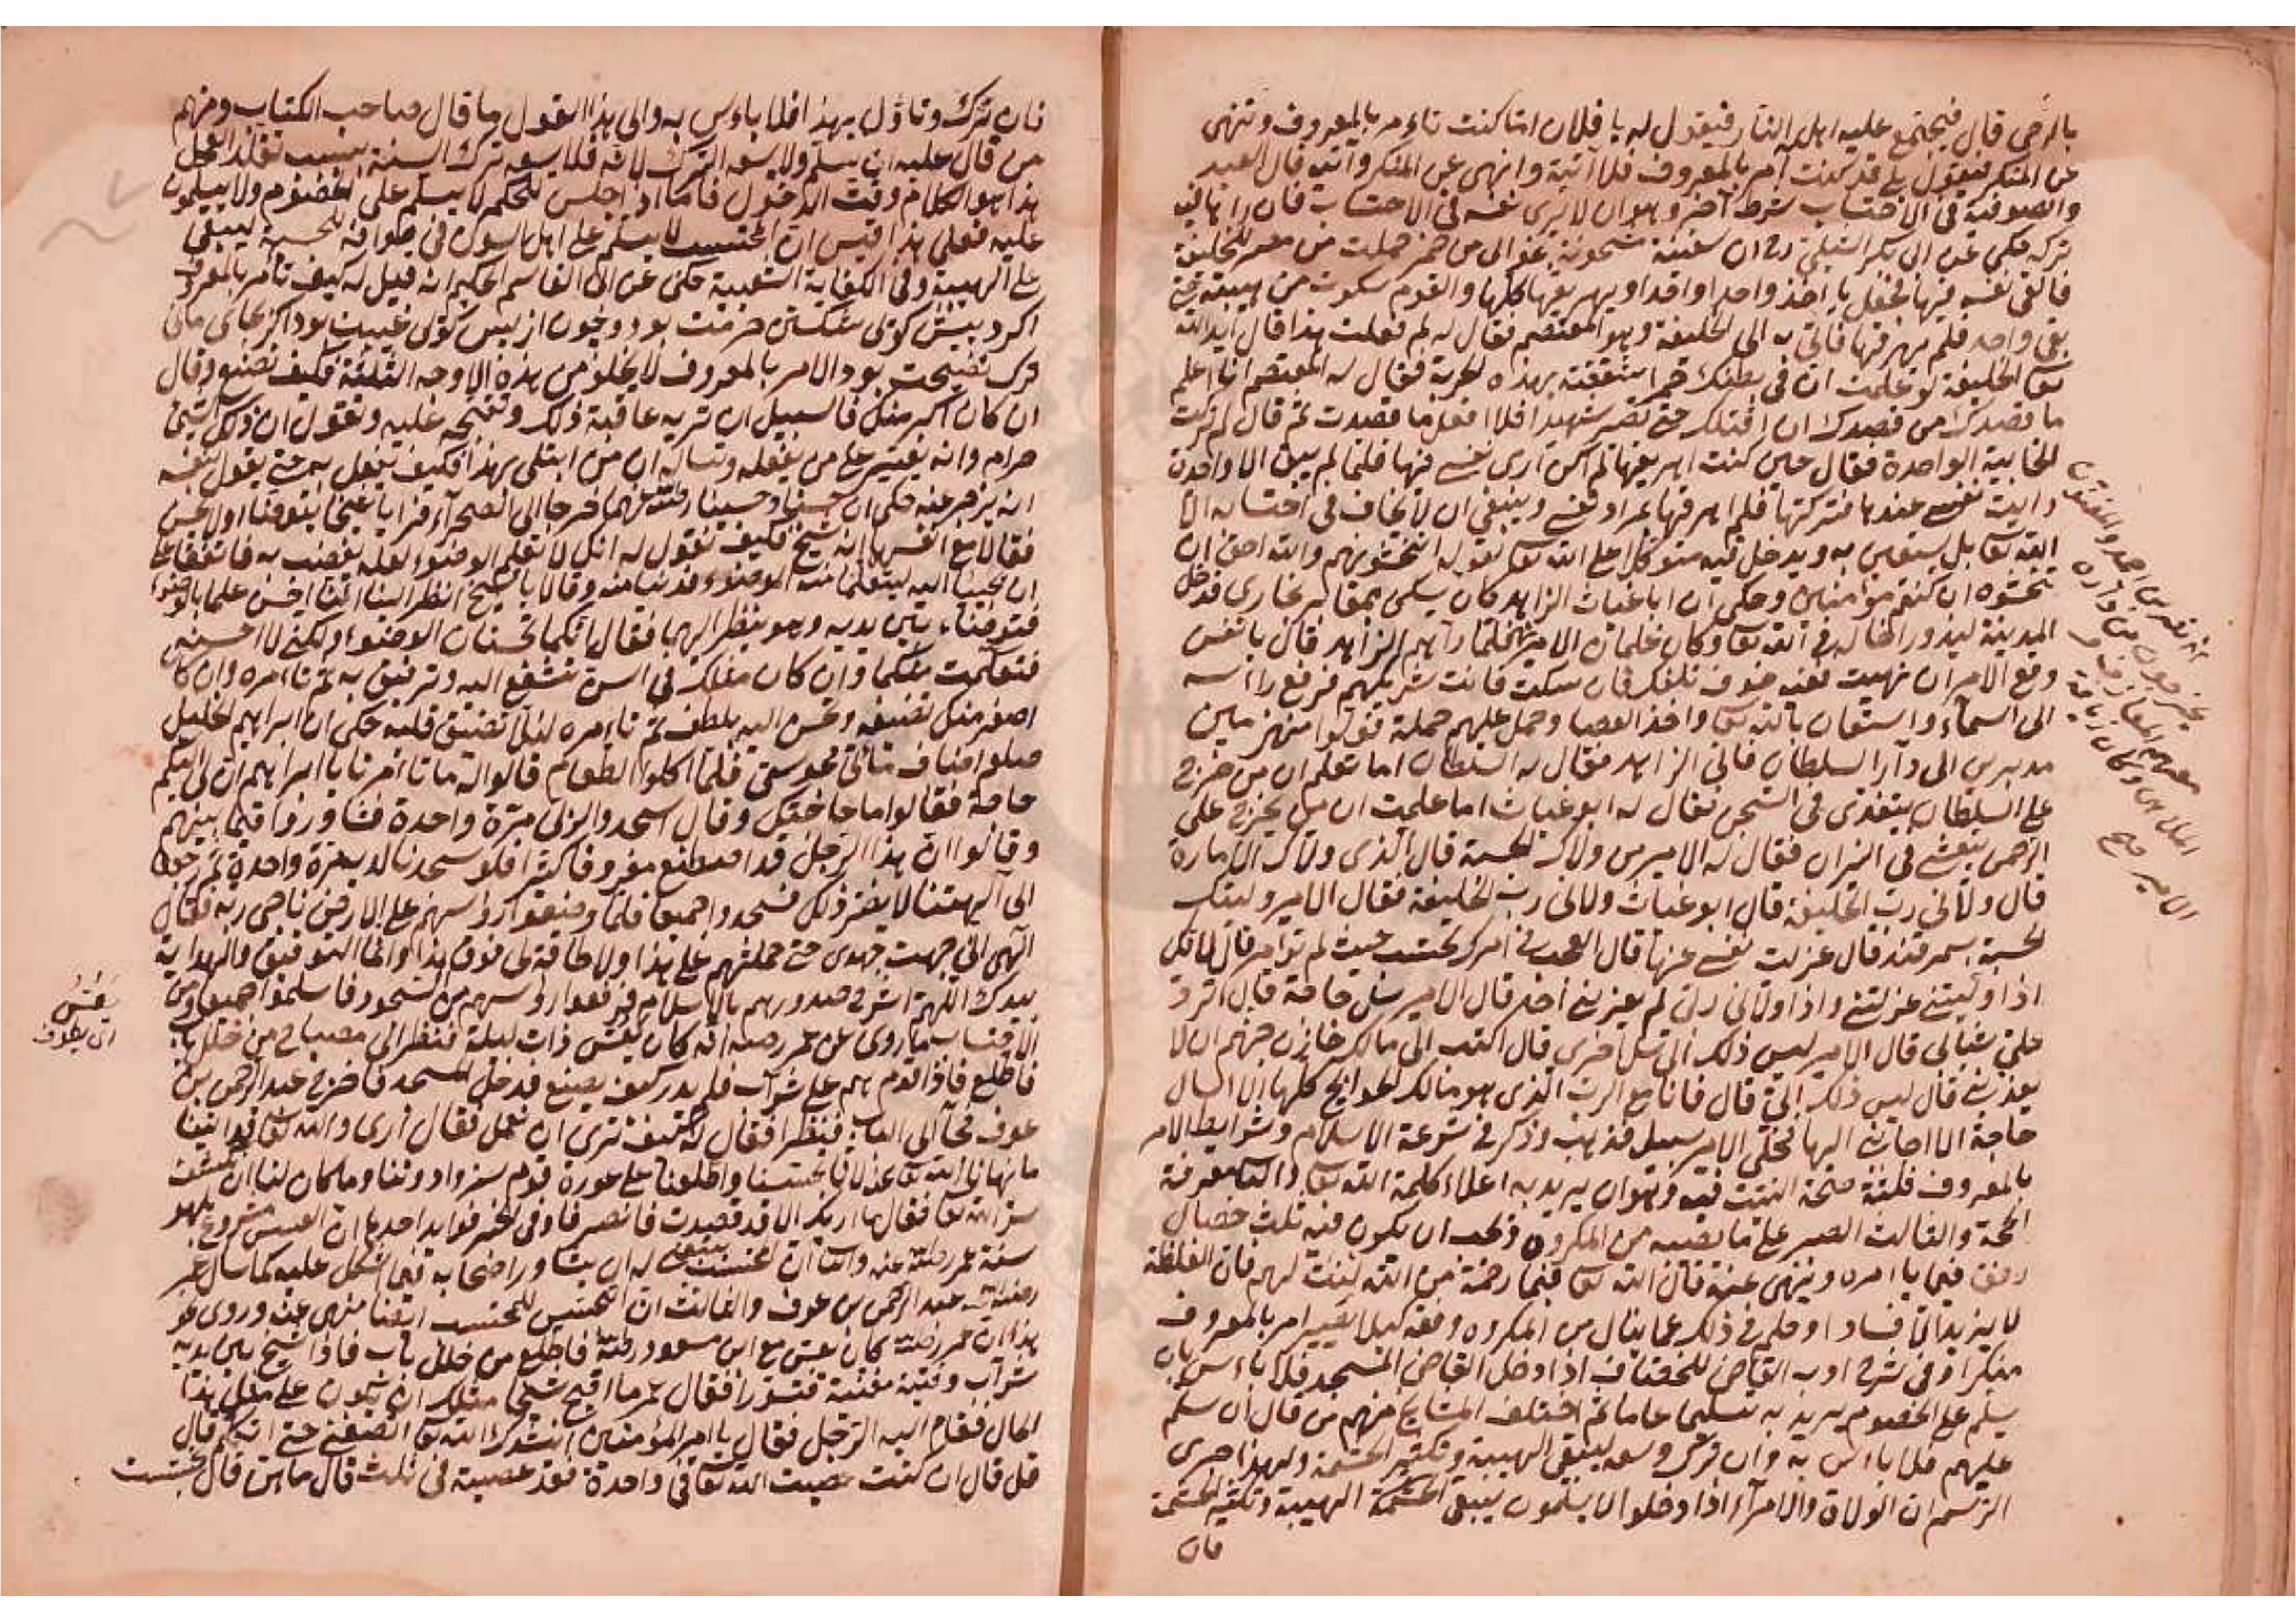 بالرحى قال فيجتمع عليه اهل النار فيقول له يا فلان اما كنت تاءمر بالمعروف وتنهى
عن المنكر فيقول بلى قد كنت آمر بالمعروف فلا آتية وانهى عن المنكر وآتيه قال العبد
والصوفية في الاحتساب شرط آخر وهو ان لا يرى نفسه في الاحتساب فان راها فيه
تركه حكي عن ابى بكر الشبلي رح ان سفينة مشحونة خوابى من خمر حملت من مصر للخليفة
فالقى نفسه فيها فجعل ياخذ واحدا واحدا ويهريقها كلها والقوم سكوت من هيبته حتى
بقى واحد فلم يهرقها فاتي به الى الخليفة وهو المعتصم فقال له لم فعلت هذا قال ايد الله
تعا الخليفة لو علمت ان في بطنك خمرا شققته بهذه الحربة فقال له المعتصم انا اعلم
ما قصدك من قصدك ان اقتلك حتى تصير شهيدا فلا افعل ما قصدت ثم قال لم تركت
الخابية الواحدة فقال حين كنت اهريقها لم اكن ارى نفسى فيها فلما لم يبق الا واحدة
رايت نفسى عندها فتركتها فلم اهرقها بمراد نفسى وينبغى ان لا يخاف في احتسابه الا
الله تعا بل يستعين به ويدخل فيه متوكلا على الله تعا لقوله اتخشونهم والله احق ان
تخشوه ان كنتم مؤمنين وحكى ان ابا غياث الزاهد كان يسكن بمقابر بخارى فدخل
المدينة ليزور اخا له في الله تعا وكان غلمان الامير فلما رآهم الزاهد قال يا نفس
وقع الامر ان نهيت ففيه خوف تلفك فان سكت فانت شريكهم فرفع راسه
الى السماء واستعان بالله تعا واخذ العصا وحمل عليهم حملة فولوا منهزمين
مدبرين الى دار السلطان فاتى الزاهد فقال له السلطان اما تعلم ان من خرج
على السلطان يتغذى في السجن فقال له ابو غياث اما علمت ان من يخرج على
الرحمن يتعشى في النيران فقال له الامير من ولاك الحسبة قال الذى ولاك الامارة
قال ولانى رب الخليفة قال ابو غياث ولانى رب الخليفة فقال الامير وليتك
الحسبة بسمرقند قال عزلت نفسى عنها قال العجب في امرك تحتسب حيث لم تؤامر قال لانك
اذا وليتنى عزلتنى واذا ولانى ربى لم يعزلنى احد قال الامير سل حاجة قال اترد
على شبابى قال الامير ليس ذلك الى سل اخرى قال اكتب الى مالك خازن جهنم ان لا
يعذبنى قال ليس ذلك الى قال فانا مع الرب الذى هو مالك الحوايج كلها لا اسال
حاجة الا اجابنى اليها فخلى الامير سبيله فذهب وذكر في شرعة الاسلام وشرايط الامر
بالمعروف ثلثة صحة النية فيه وهو ان يريد به اعلاء كلمة الله تعا والثا معرفة
الحجة والثالث الصبر على ما يصيبه من المكروه ويجب ان يكون فيه ثلث خصال
رفق فيما ياءمره وينهى عنه قال الله تعا فبما رحمة من الله لنت لهم فان الغلظة
لا يزيد الا فسادا وحلم في ذلك عما ينال من المكروه وفقه كيلا يصير امر بالمعروف
منكرا وفي شرح ادب القاضى للخصاف اذا دخل القاضى المسجد فلا باءس بان
يسلم على الخصوم يريد به تسليما عاما ثم اختلف المشايخ منهم من قال ان سلم
عليهم فلا باس به وان ترك وسعه ليبقى الهيبة وتكثير الحشمة ولهذا جرى
الرسم ان الولاة والامراء اذا دخلوا لا يسلمون ليبقى الهيبة وتكثير الحشمة
فان
الامير
فان ترك وتاؤل بهذا فلا باءس به والى هذا القول ما قال صاحب الكتاب ومنهم
من قال عليه ان يسلم ولا يسعه الترك لانه فلا يسعه ترك السنة بسبب تقلد العمل
هذا هو الكلام وقت الدخول فاما اذا جلس للحكم لا يسلم على الخصوم ولا يسلمون
عليه فعلى هذا قيس ان المحتسب لا يسلم على اهل السوق في طوافه للحسبة ليبقى
على الهيبة وفي الكفاية الشعبية حكى عن ابى القاسم الحكيم انه قيل له كيف تأمر بالمعروف
اكر در پيش كوئى شكستن حرمت بود وچون از پس كوئى غيبت بود اكر بجاى مانى
ترك نصيحت بود الامر بالمعروف لا يخلو من هذه الاوجه الثلثة فكيف نصنع وقال
ان كان اكبر منك فالسبيل ان تريه عاقبة ذلك وتقبحه عليه وتقول ان ذلك الشئ
حرام وانه يعسر على من يفعله وتساله ان من ابتلى بهذا فكيف نفعل به حتى يقول بنفسه
انه يزجر عنه حكى ان حسنا وحسينا رضى الله عنهما خرجا الى الصحراء فرايا شيخا يتوضا ولا يحسن
فقالا مع انفسهما انه شيخ فكيف نقول له انك لا تعلم الوضوء لعله يغضب به فاتفقا على
ان يجيئا اليه ليتعلما منه الوضوء فدنيا منه وقالا يا شيخ انظر الينا اينا احسن علما بالوضوء
فتوضئا بين يديه وهو ينظر اليهما فقال انكما تحسنان الوضوء ولكنى لا احسنه
فتعلمت منكما وان كان مثلك في السن تشفع اليه وترفق به ثم تاءمره وان كان
اصغر منك تضيفه وتحسن اليه بلطف ثم تاءمره لئلا تضيق قلبه حكى ان ابراهيم الخليل
صلع اضاف مائتى مجوسى فلما اكلوا الطعام قالوا له ما تاءمرنا يا ابراهيم ان لى اليكم
حاجة فقالوا ما حاجتك وقال اسجدوا لربى مرة واحدة فتشاوروا فيما بينهم
وقالوا ان هذا الرجل قد اصطنع معروفا كثيرا فلو سجدنا لربه مرة واحدة ثم رجعنا
الى آلهتنا لا يضر ذلك فسجدوا جميعا فلما وضعوا رؤسهم على الارض ناجى ربه فقال
الهى انى جهدت جهدى حتى حملتهم على هذا ولا طاقة لى فوق هذا وانما التوفيق والهداية
بيدك اللهم اشرح صدورهم بالاسلام فرفعوا رؤسهم من السجود فاسلموا جميعا ومن
الاحتساب ما روى عن عمر رضه انه كان يعس ذات ليلة فنظر الى مصباح من خلل باب
فاطلع فاذا قوم هم على شراب فلم يدر كيف يصنع فدخل المسجد فاخرج عبد الرحمن بن
عوف فجاء الى الباب فنظرا فقال كيف ترى ان نعمل فقال ارى والله تعا قد اتينا
ما نهانا الله تعا عنه لانا تجسسنا واطلعنا على عورة قوم ستروا دوننا وما كان لنا ان نكشف
ستر الله تعا فقال ما اريك الا قد صدقت فانصرفا وفى الخبر فوايد احدها ان العسس مشروع وهو
سنة عمر رضى الله عنه والثا ان المحتسب ينبغى له ان يشاور اصحابه فيما اشكل عليه كما سال عمر
رضى الله عنه عبد الرحمن بن عوف والثالث ان التجسس للمحتسب ايضا منهى عنه وروى نحو
هذا ان عمر رضى الله كان يعس مع ابن مسعود رضى الله فاطلع من خلل باب فاذا شيخ بين يديه
شراب وقينة مغنية فتسورا فقال عمر ما اقبح شيخا مثلك ان يكون على مثل هذا
الحال فقام اليه الرجل فقال يا امير المؤمنين انشدك الله تعا الا انصفتنى حتى اتكلم قال
قل قال ان كنت عصيت الله تعا في واحدة فقد عصيته في ثلث قال ما هن قال تجسست
يعس
اى يطوف